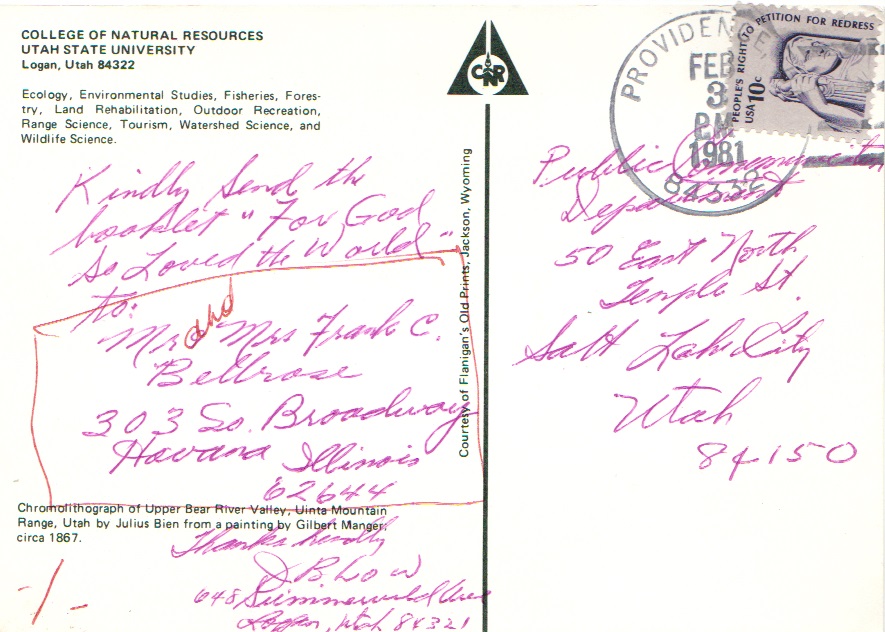 COLLEGE OF NATURAL RESOURCES
UTAH STATE UNIVERSITY
Logan, Utah 84322
Ecology, Environmental Studies, Fisheries, Fores-
try, Land Rehabilitation, Outdoor Recreation,
Range Science, Tourism, Watershed Science, and
Wildlife Science.
CNR
Kindly send the
booklet "For God
So Loved the World"
to:
Mr and Mrs Frank C.
Bellrose
303 So. Broadway
Havana Illinois
62644
Chromolithograph of Upper Bear River Valley, Uinta Mountain
Range, Utah by Julius Bien from a painting by Gilbert Manger,
circa 1867.
Thanks kindly
J B. Low
648
Logan, Utah 84321
Courtesy of Flanigan's Old Prints, Jackson, Wyoming
PROVIDENCE
FEB
3
PM
1981
84332
PETITION FOR REDRESS
PEOPLE'S RIGHT TO
USA 10c
Public Communication
Department
50 East North
Temple St.
Salt Lake City
Utah
84150